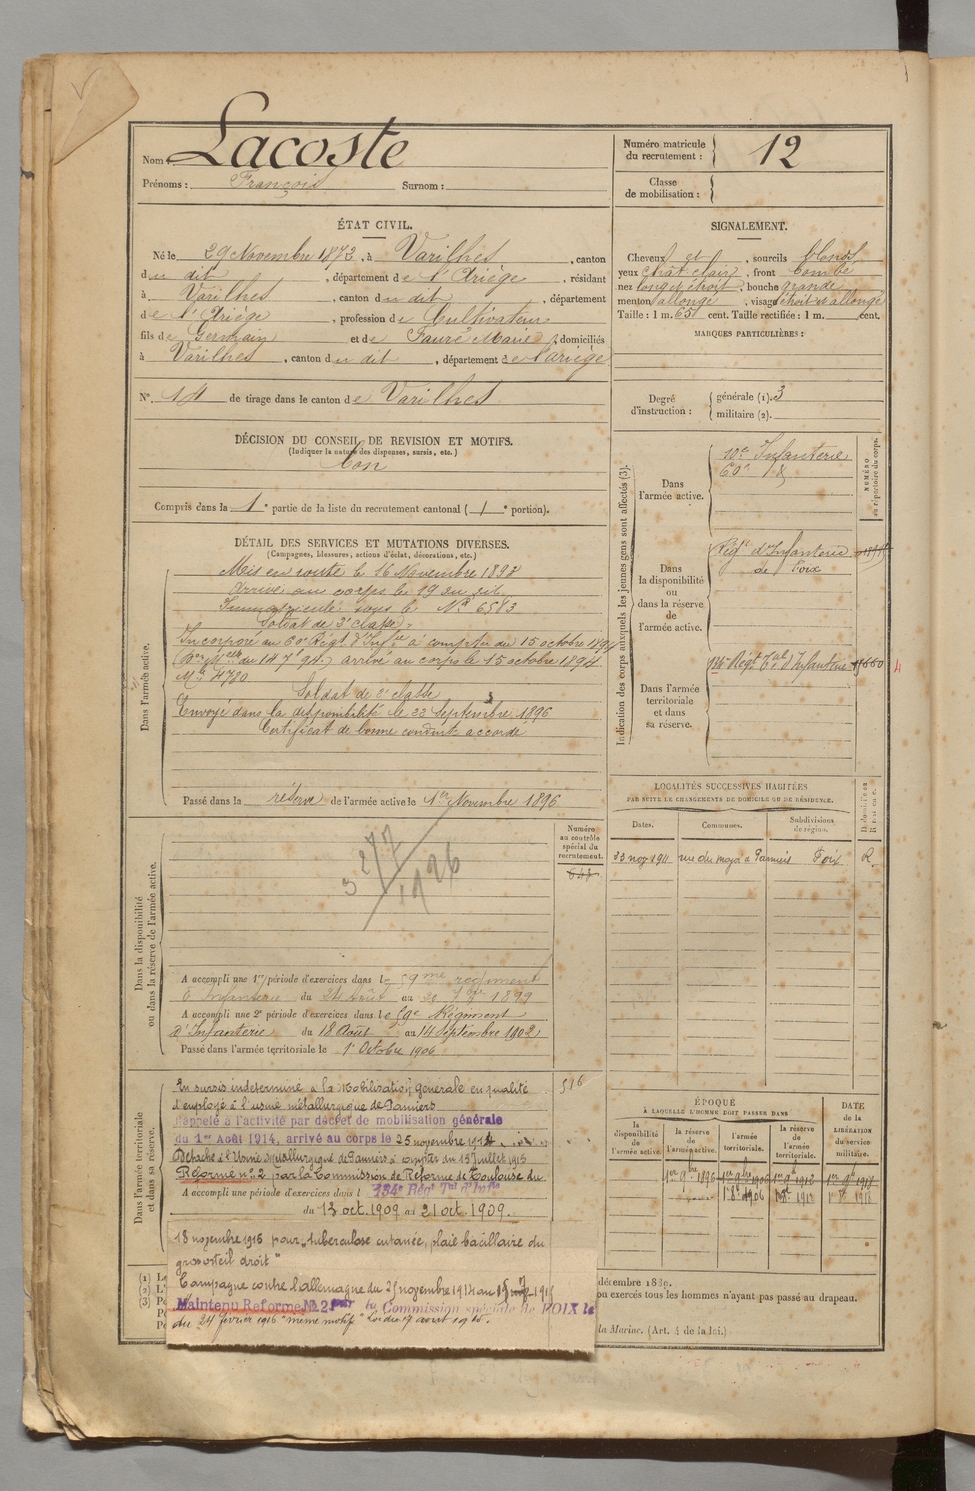 Nom : Lacoste
Prénoms : François Surnom :
Numéro matricule du recrutement : 12
Classe de mobilisation :
ÉTAT CIVIL.
Né le 29 Novembre 1873, à Varilhes, canton
du dit, département de l'Ariège, résidant
à Varilhes, canton du dit, département
de l'Ariège, profession de Cultivateur
fils de Germain et de Faure Marie, domiciliés
à Varilhes, canton du dit, département de l'ariège
N° 14 de tirage dans le canton de Varilhes
DÉCISION DU CONSEIL DE REVISION ET MOTIFS.
(Indiquer la nature des dispenses, sursis, etc.)
bon
Compris dans la 1e partie de la liste du recrutement cantonal (1e portion).
SIGNALEMENT.
Cheveux et sourcils blonds
yeux chat. clair, front bombé
nez long et étroit, bouche grande
menton allongé, visage étroit et allongé
Taille : 1 m. 65 cent. Taille rectifiée : 1 m. cent.
MARQUES PARTICULIÈRES :
Degré d'instruction : générale (1). 3
militaire (2).
DÉTAIL DES SERVICES ET MUTATIONS DIVERSES.
(Campagnes, blessures, actions d'éclat, décorations, etc.)
Dans l'armée active.
Mis en route le 16 Novembre 1894
Arrivé au corps le 19 du dit.
Immatriculé sous le N° 6513
Soldat de 2e classe.
Incorporé au 60e Régt d'Infie à compter du 15 octobre 1894
arrivé au corps le 15 octobre 1894
Mle 4780
Soldat de 2e classe
Envoyé dans la disponibilité le 22 Septembre 1896
Certificat de bonne conduite accordé
Passé dans la réserve de l'armée active le 1er Novembre 1896
Indication des corps auxquels les jeunes gens sont affectés (3).
NUMÉRO au répertoire du corps.
Dans l'armée active.
10e Infanterie
60e d°
Dans la disponibilité ou dans la réserve de l'armée active.
Régt d'Infanterie
de Foix
Dans l'armée territoriale et dans sa réserve.
134e Régt Tal d'Infanterie
LOCALITÉS SUCCESSIVES HABITÉES
PAR SUITE DE CHANGEMENTS DE DOMICILE OU DE RÉSIDENCE.
Dates. Communes. Subdivisions de région. Domicile ou Résidence.
23 nov 1911 Pamiers Foix R.
Dans la disponibilité ou dans la réserve de l'armée active.
Numéro au contrôle spécial du recrutement.
A accompli une 1re période d'exercices dans le 59me regiment
d'Infanterie du 24 Août au 20 7bre 1899
A accompli une 2e période d'exercices dans le 59e Régiment
d'Infanterie du 18 Août au 14 Septembre 1902
Passé dans l'armée territoriale le 1er Octobre 1906
Dans l'armée territoriale et dans sa réserve.
516
En sursis indeterminé à la Mobilisation generale en qualité
d'employé à l'usine métallurgique de Pamiers
Rappelé à l'activité par décret de mobilisation générale
du 1er Août 1914, arrivé au corps le 25 novembre 1914
Détaché à l'Usine Métallurgique de Pamiers à compter du 15 Juillet 1915
Réformé n° 2 par la Commission de Réforme de Toulouse du
A accompli une période d'exercices dans l 134e Régt Tal d'Infie
du 13 oct. 1909 au 21 oct. 1909.
18 novembre 1915 pour "tuberculose cutanée, plaie bacillaire du
gros orteil droit"
Campagne contre l'allemagne du 25 novembre 1914 au
Maintenu Réformé N° 2 par la Commission spéciale de FOIX le
du 24 février 1916 "même motif" Loi du 17 aout 1915.
ÉPOQUE
À LAQUELLE L'HOMME DOIT PASSER DANS
la disponibilité de l'armée active. la réserve de l'armée active. l'armée territoriale. la réserve de l'armée territoriale.
DATE de la LIBÉRATION du service militaire.
1er 9bre 1896
décembre 1889.
on exercés tous les hommes n'ayant pas passé au drapeau.
la Marine. (Art. 4 de la loi.)